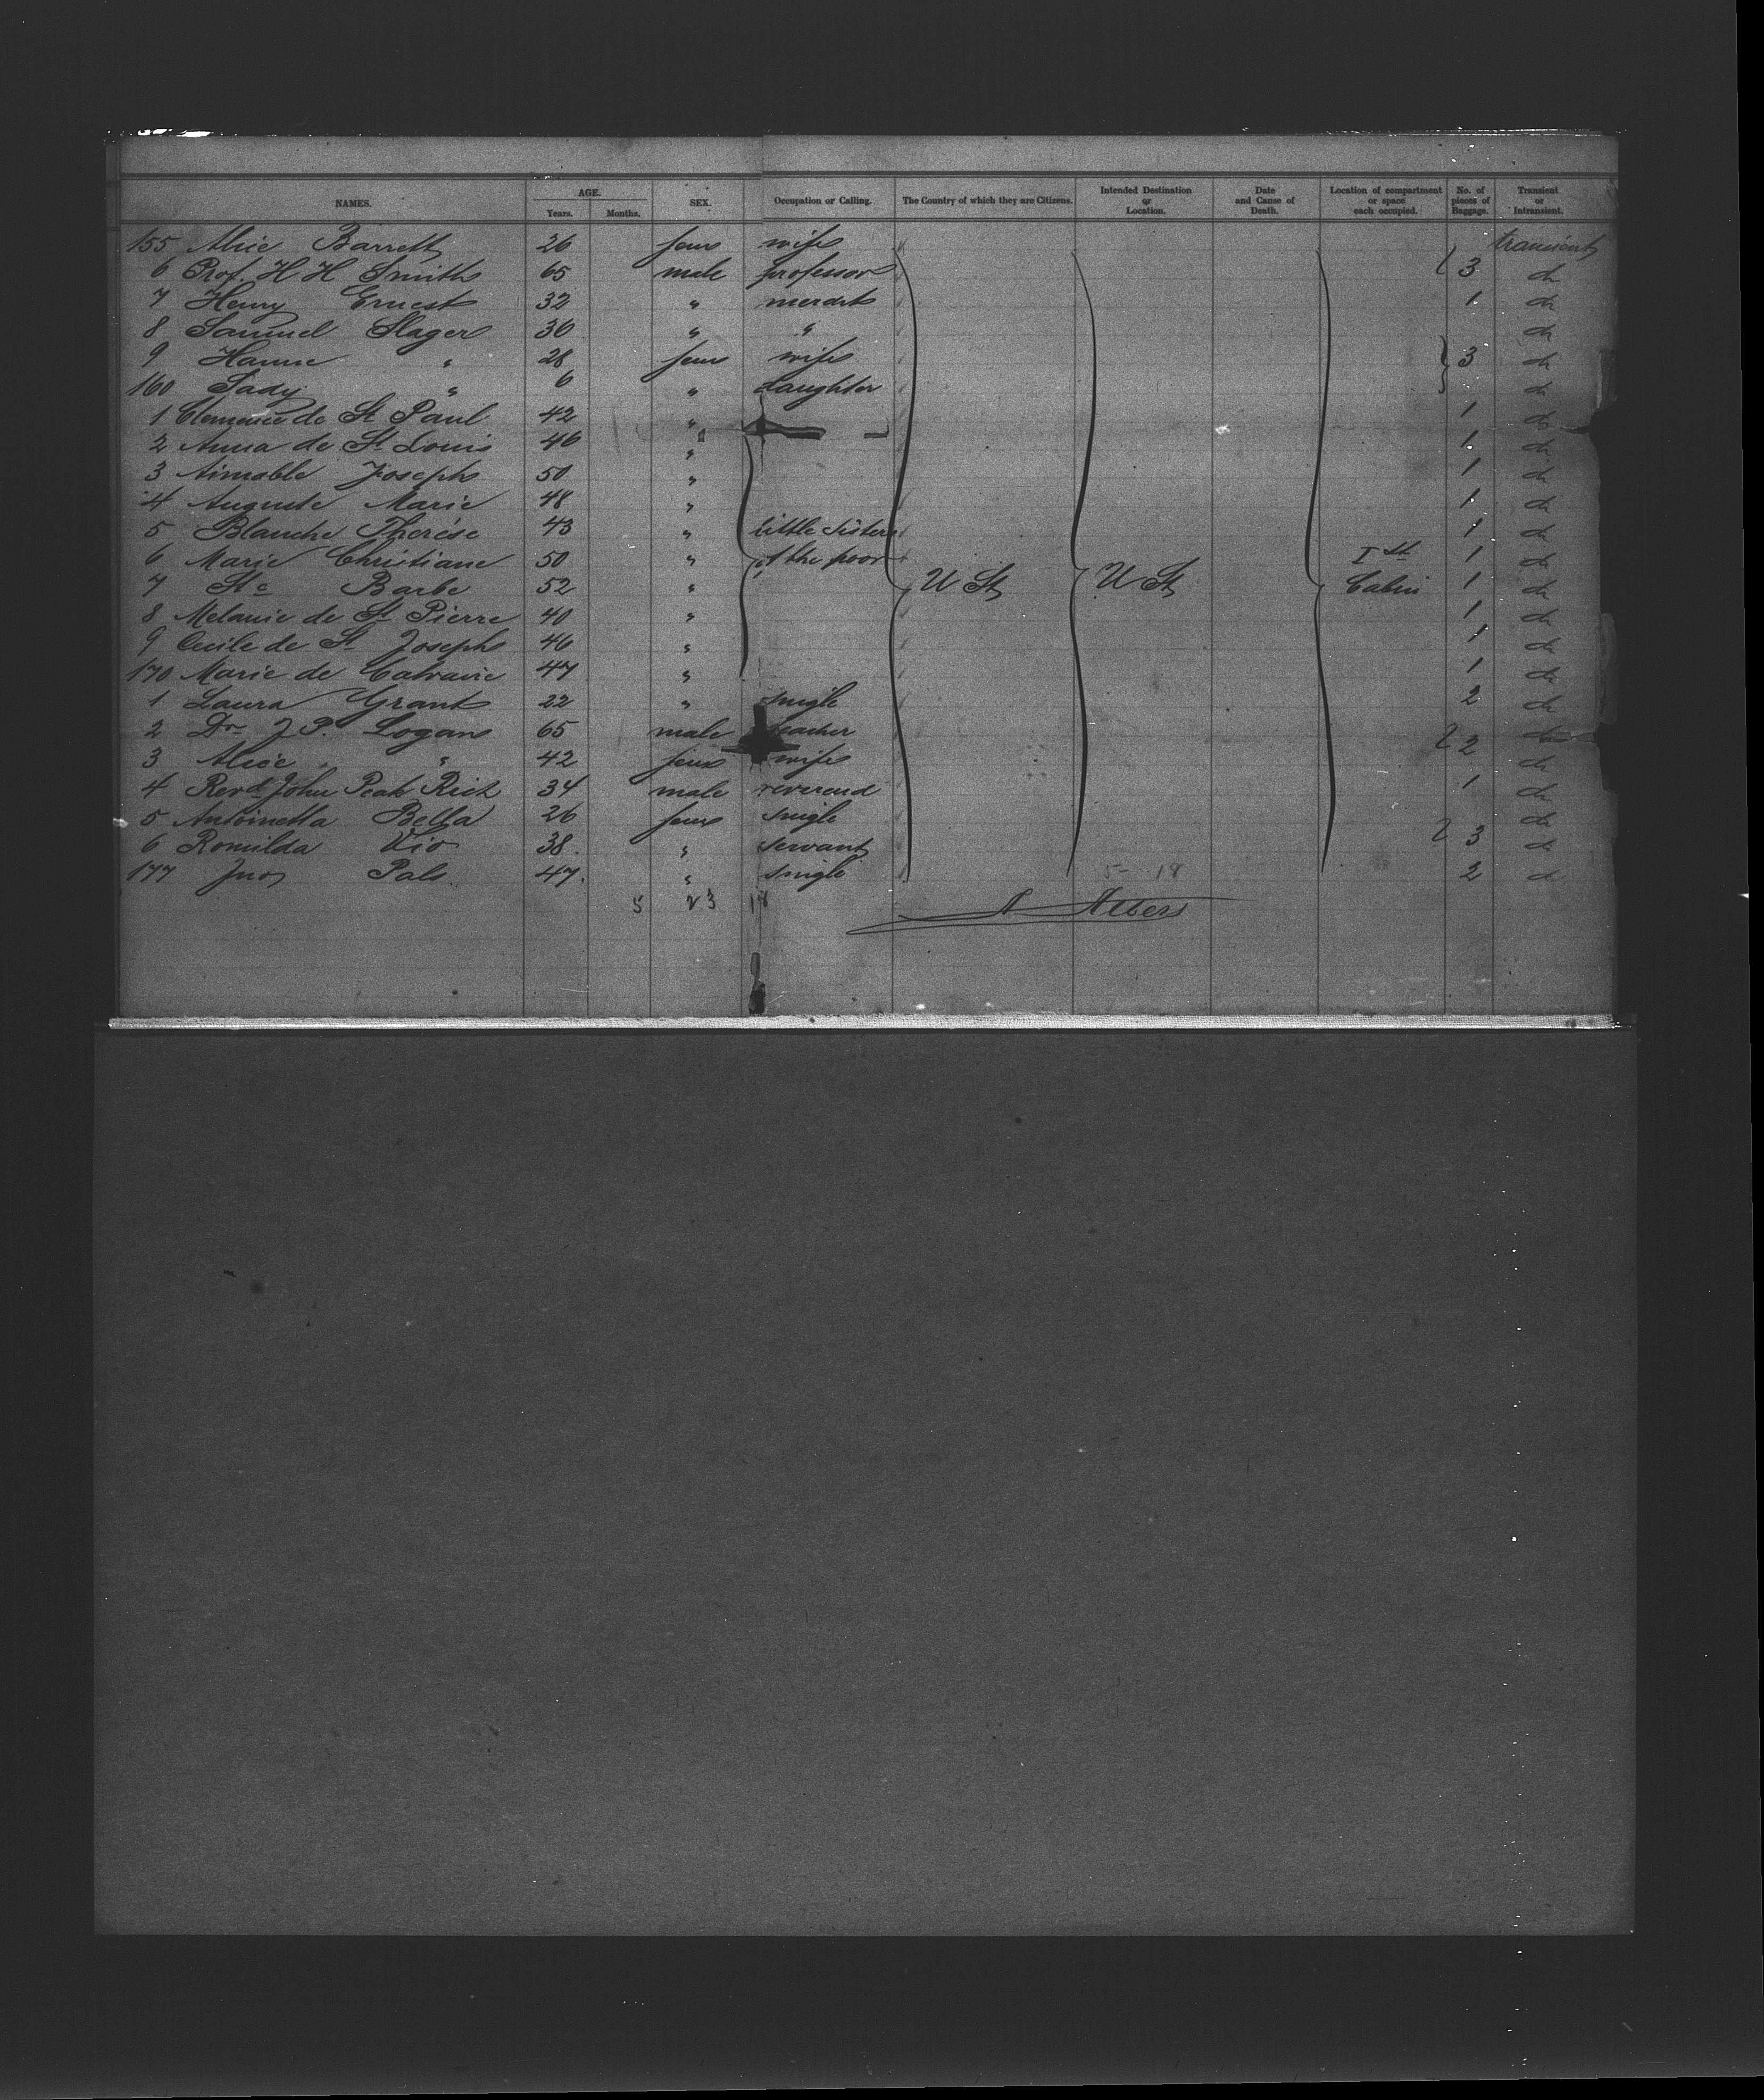 NAMES. AGE. Years. Months. SEX. Occupation or Calling. The Country of which they are Citizens. Intended Destination or Location. Date and Cause of Death. Location of compartment or space each occupied. No. of pieces of Baggage. Transient or Intransient.
155 Alice Barrett 26 fem wife transient
6 Prof. H H Smith 65 male professor 3 do
7 Henry Ernest 32 " mercht 1 do
8 Samuel Slager 36 " " do
9 Hanne " 28 fem wife 3 do
160 Sady " 6 " daughter do
1 Clemence de St Paul 42 " 1 do
2 Anna de St Louis 46 " 1 do
3 Aimable Joseph 50 " 1 do
4 Auguste Marie 48 " 1 do
5 Blanche Therése 43 " little Sisters 1 do
6 Marie Christiane 50 " of the poor Ist 1 do
7 Ste Barbe 52 " U St U St Cabin 1 do
8 Melanie de St Pierre 40 " 1 do
9 Cecile de St Joseph 46 " 1 do
170 Marie de Calvaire 47 " 1 do
1 Laura Grant 22 " single 2 do
2 Dr. J. P. Logan 65 male teacher 2 do
3 Alice " 42 fem wife do
4 Revd John Peak Rich 34 male reverend 1 do
5 Antoinetta Bella 26 fem single do
6 Romilda Vio 38. " servant 3 do
177 Pals 47. " single 5 - 18 2 do
5 23 18
A Albers